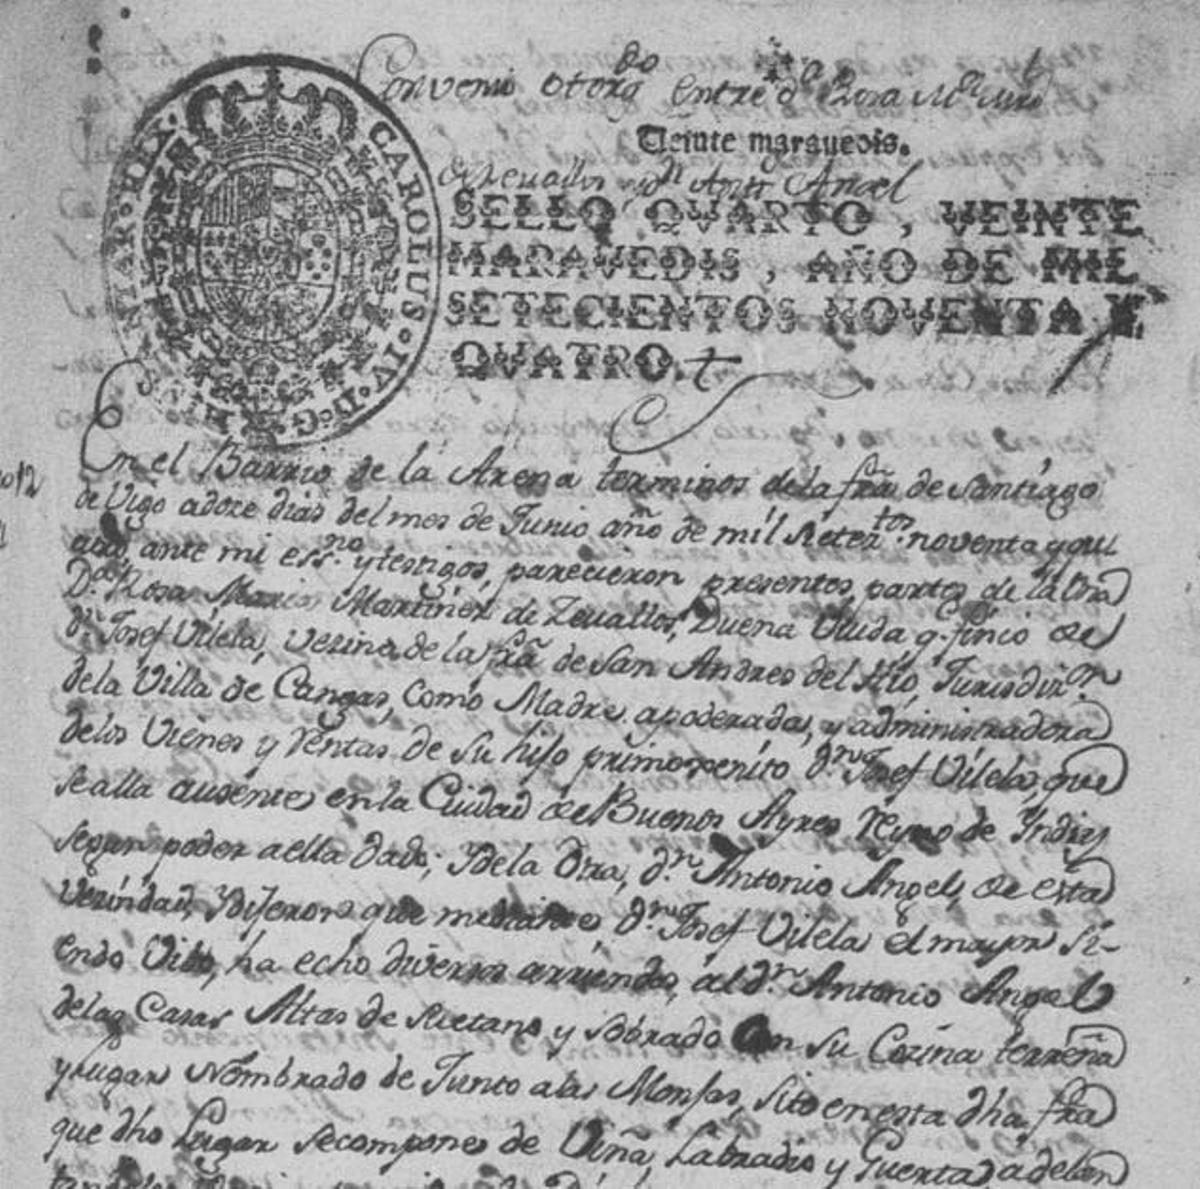 Convenio otorgdo Entre da Rosa Ma Mrz
Veinte maravedis.
de Zeuallos y dn Antt Angel
SELLO QVARTO, VEINTE
MARAVEDIS, AÑO DE MIL
SETECIENTOS NOVENTA Y
QUATRO.
CAROLUS·IV·D·G·HISPANIAR·REX·
En el Barrio de la Arena terminos dela fra de Santiago
de Vigo adoze dias del mes de Junio año de mil setezttos noventa y qu
atro, ante mi essno y testigos, parecieron presentes, partes de la Vna
Da Rosa Maria Martinez de Zeuallos, Buena Viuda q. finco de
dn Josef Vilela, vezina de la fra de San Andres del Hio, Jurisdizn
dela Villa de Cangas, como Madre apoderada, y administradora
delos Vienes y rentas de su hijo primogenito dn Josef Vilela, que
sealla ausente en la Ciudad de Buenos Ayres Reyno de Indias
segun poder aella dado; Ydela Otra, dn Antonio Angel, de esta
Vezindad, Ydijeron que mediante dn Josef Vilela el mayor si-
endo Vibo, ha echo diversos arriendos, al dn Antonio Angel
delas Casas Altas de sietano y sobrado con su Cozina terreña
y lugar Nombrado de Junto alas Monjas, sito enesta dha fra
que dho Lugar secompone de Viña, Labradio y Guerta adelan